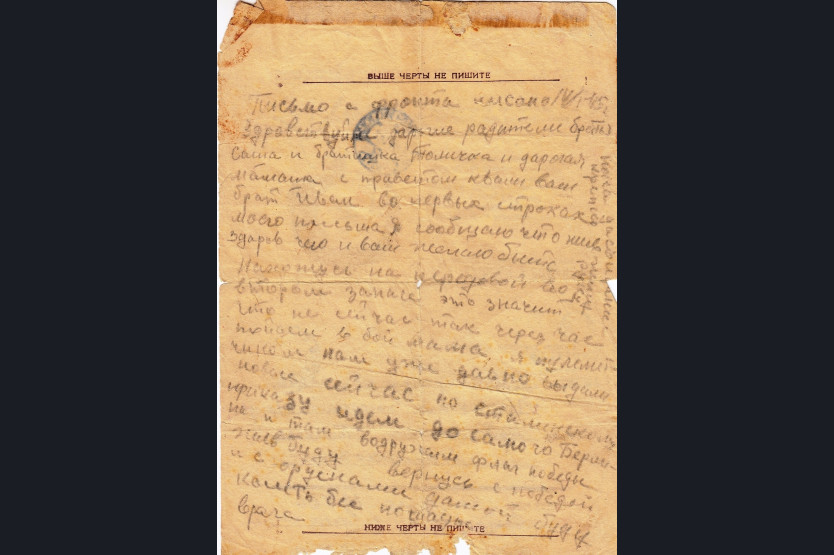 ВЫШЕ ЧЕРТЫ НЕ ПИШИТЕ
Письмо с фронта писано 14/I-45
Здравствуйте дарогие радители братья
Саша и братишка Толичка и дарогая
мамаша с приветом к вам ваш
брат Иван во первых строках
моего письма я сообщаю что жив
здаров чего и вам желаю быть
Нахожусь на передовой во
втором это значит
что не сейчас так через час
пойдем в бой мама я пулемет
чиком нам уже давно выдали
новые сейчас по сталинскому
приказу идем до самого Берли
на и там водрузим флаг победы
жив буду вернусь с победой
и с
колоть без пощады
врага
НИЖЕ ЧЕРТЫ НЕ ПИШИТЕ